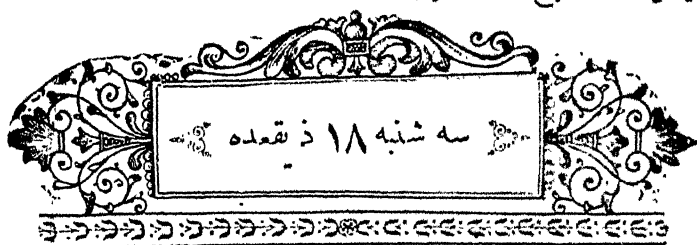 سه شنبه ۱۸ ذیقعده